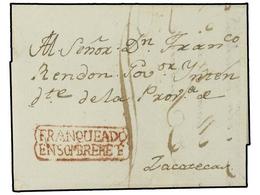 Al Señor Dn. Franco
Rendon Gov.or y Inten
dte de la Prov.a de
Zacatecas
FRANQUEADO
EN SOMBRERETE